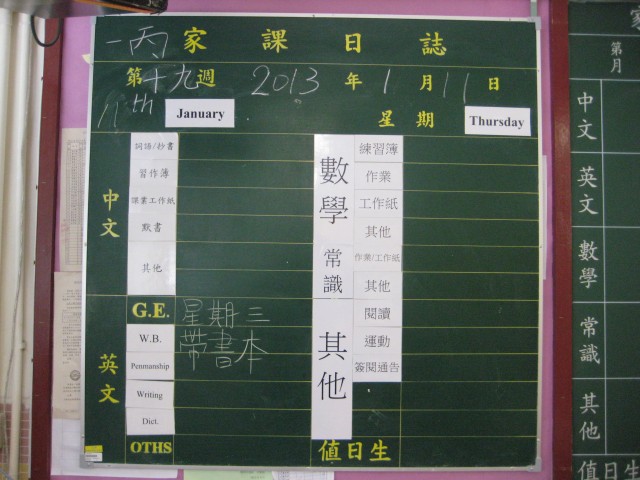 一丙 家課日誌
第十九週 2013年1月11日
11th January 星期 Thursday
中文
詞語/抄書
習作簿
課業工作紙
默書
其他
英文
G.E. 星期三
W.B. 帶書本
Penmanship
Writing
Dict.
OTHS
數學
練習簿
作業
工作紙
其他
常識
作業/工作紙
其他
其他
閱讀
運動
簽閱通告
值日生
家
第
月
中文
英文
數學
常識
其他
值日生